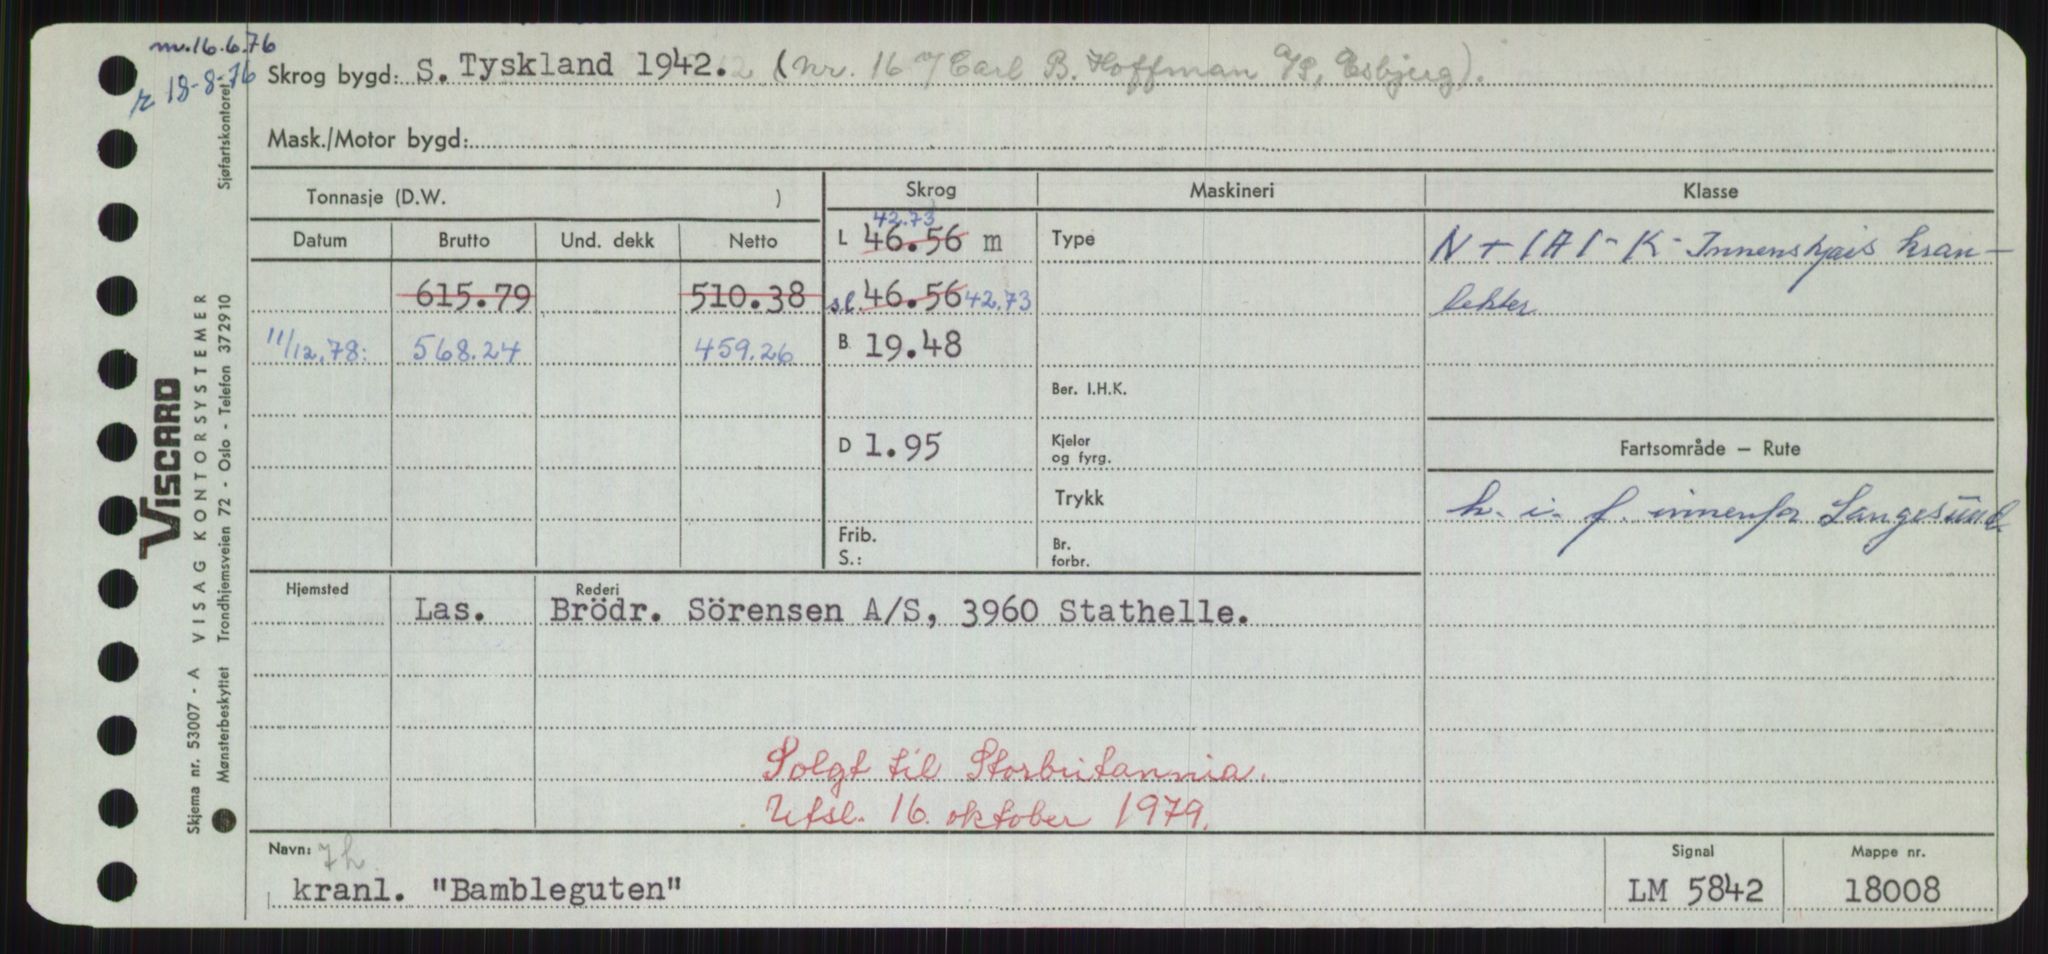 nv. 16.6.76
r 18-8-76
Skrog bygd: S. Tyskland 1942. (nr. 167 Carl B. Hoffman A/S, Esbjerg).
Mask./Motor bygd:
Tonnasje (D.W. )
Skrog
Maskineri
Klasse
Datum Brutto Und. dekk Netto
42.73
L 46.56 m
Type
N + 1A1 - K - Innenskjærs kran-
615.79 510.38
s.l. 46.56 42.73
lekter
11/12.78: 568.24 459.26
B. 19.48
Ber. I.H.K.
D 1.95
Kjeler
og fyrg.
Fartsområde – Rute
Trykk
k. i. f. innenfor Langesund.
Frib.
S.:
Br.
forbr.
Hjemsted Rederi
Las. Brödr. Sörensen A/S, 3960 Stathelle.
Solgt til Storbritannia.
Utsl. 16. oktober 1979.
Navn: 7h
kranl. "Bambleguten"
Signal
LM 5842
Mappe nr.
18008
VISCARD
Skjema nr. 53007 - A VISAG KONTORSYSTEMER
Mønsterbeskyttet Trondhjemsveien 72 - Oslo - Telefon 372910
Sjøfartskontoret